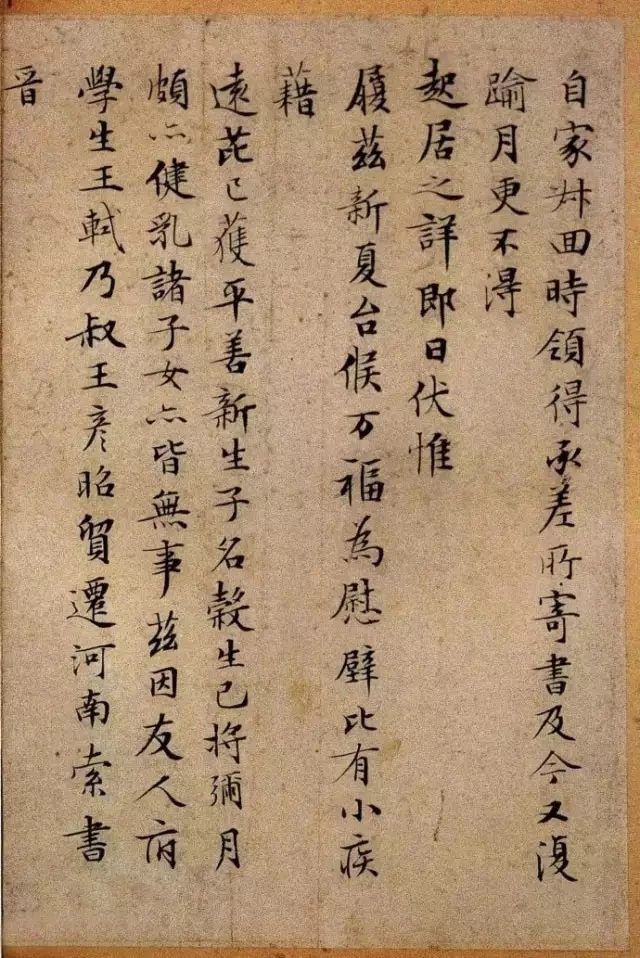 自家舛回時領得承差所寄書及今又復
踰月更不得
起居之詳即日伏惟
履茲新夏台候万福為慰璧比有小疾
藉
遠芘已獲平善新生子名穀生已將彌月
頗亦健乳諸子女亦皆無事茲因友人府
學生王軾乃叔王彥昭貿遷河南索書
晉